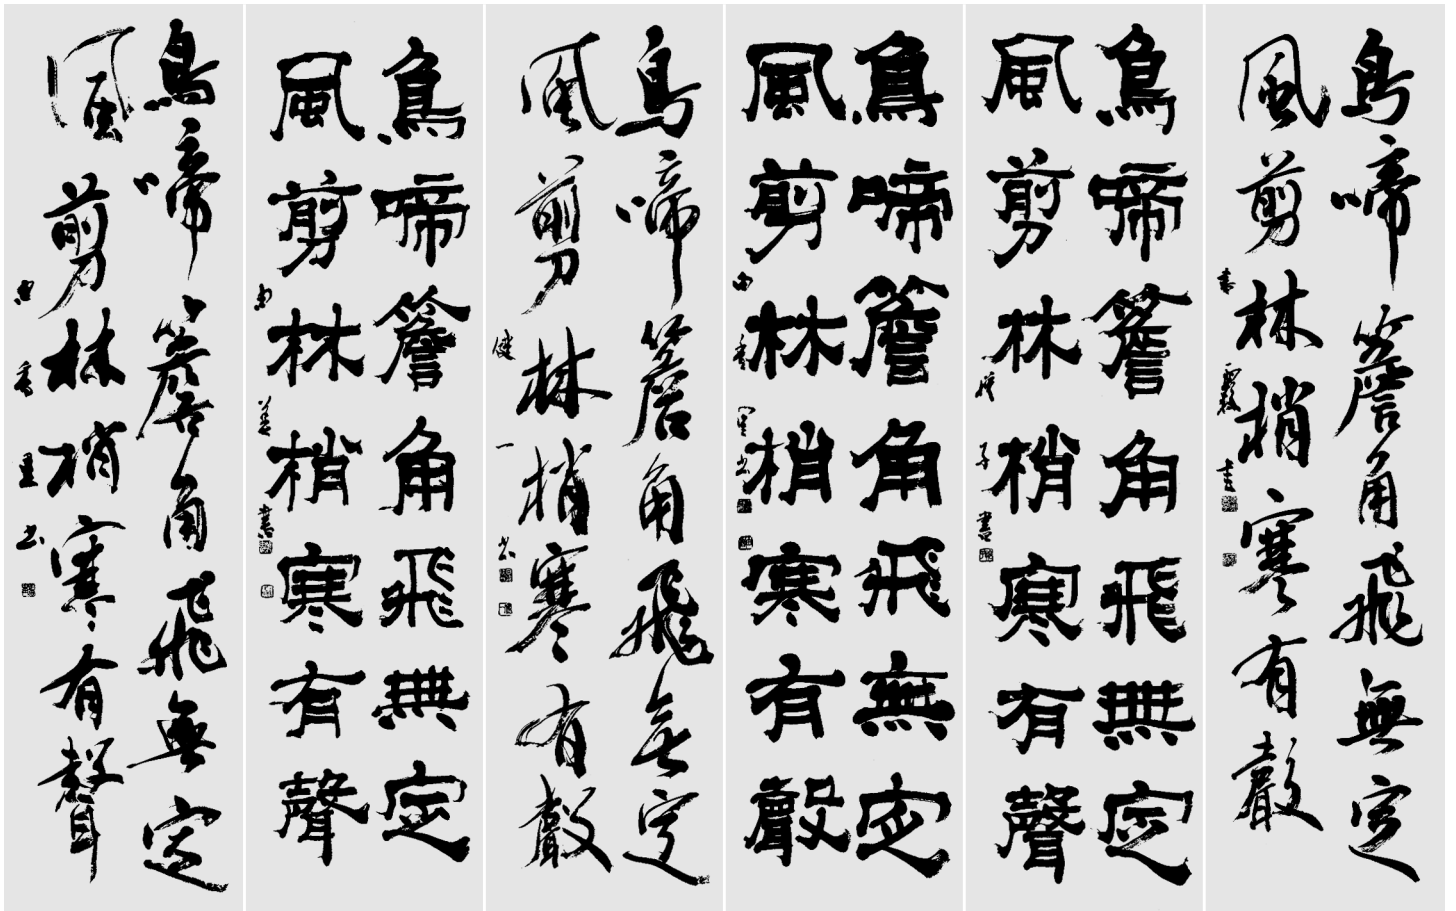 鳥啼簷角飛無定
風剪林梢寒有聲
鳥啼簷角飛無定
風剪林梢寒有聲
鳥啼簷角飛無定
風剪林梢寒有聲
鳥啼簷角飛無定
風剪林梢寒有聲
鳥啼簷角飛無定
風剪林梢寒有聲
鳥啼簷角飛無定
風剪林梢寒有聲